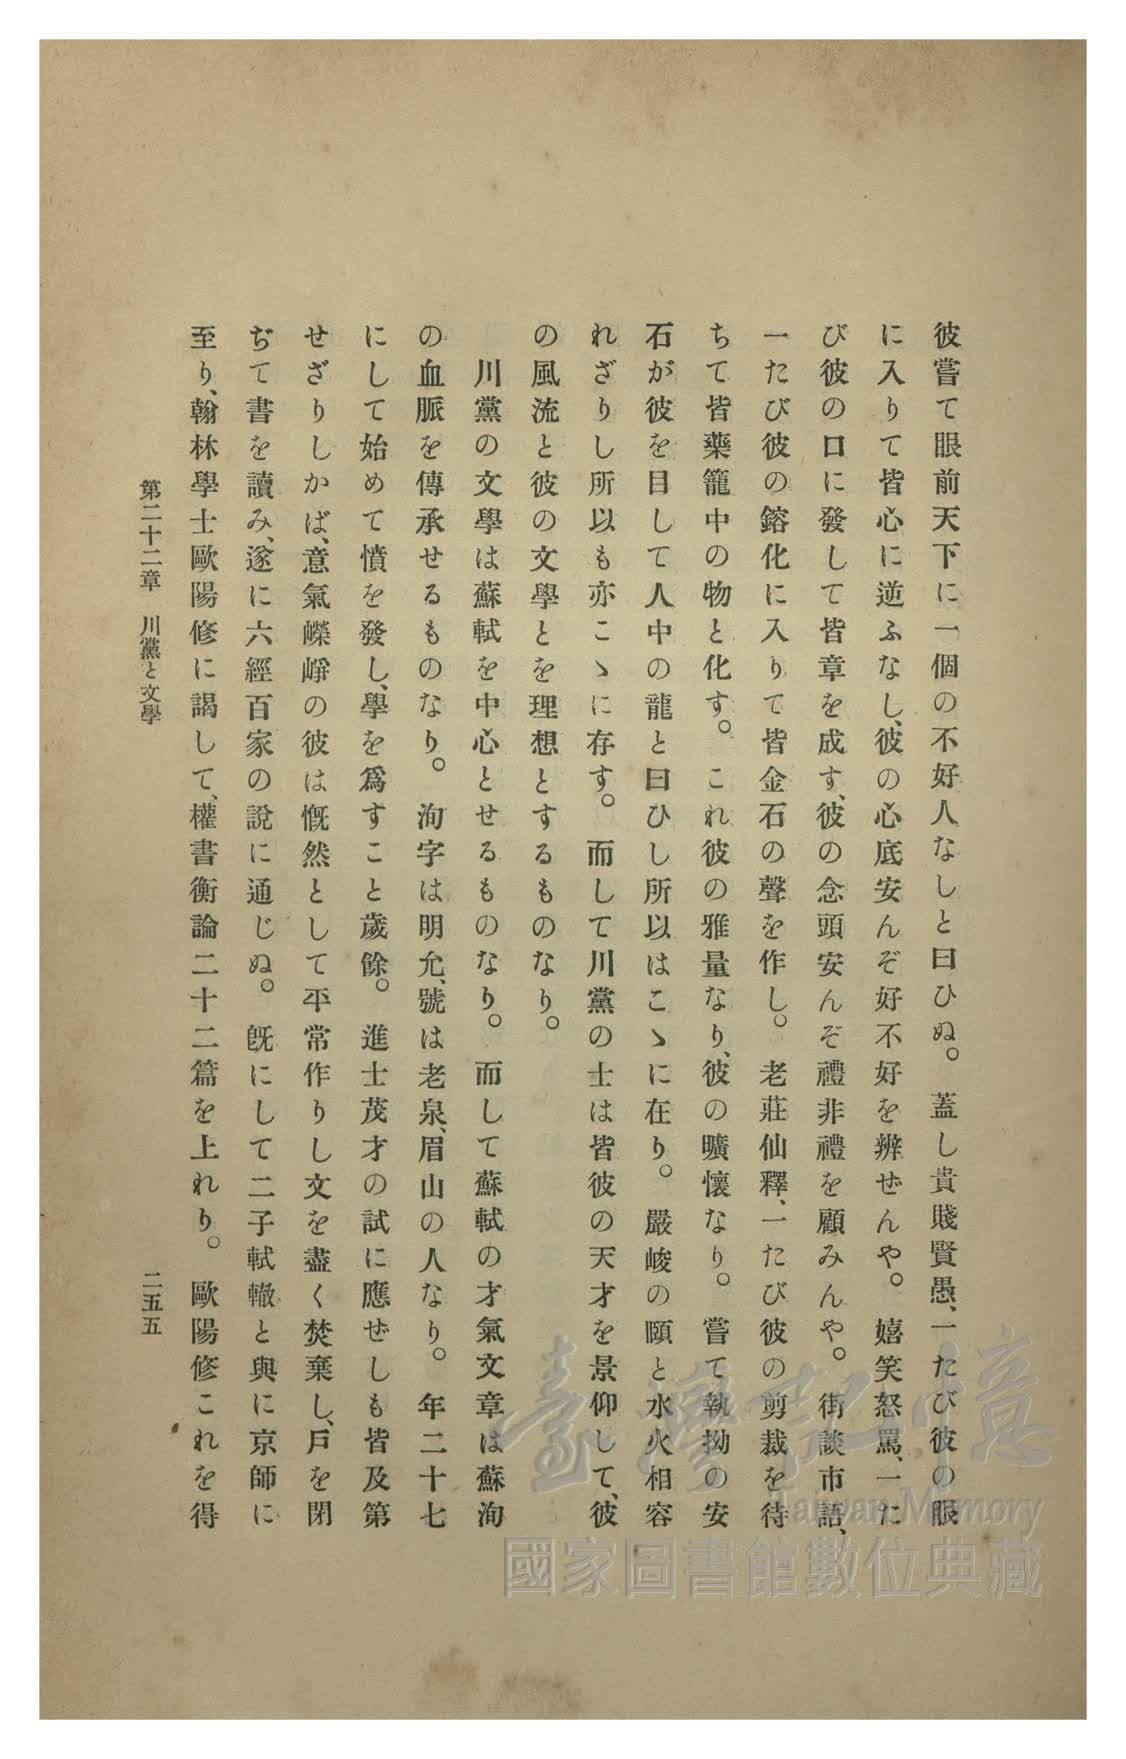 彼嘗て眼前天下に一個の不好人なしと曰ひぬ。蓋し貴賤賢愚、一たび彼の眼
に入りて皆心に逆ふなし、彼の心底安んぞ好不好を辨ぜんや。嬉笑怒罵、一た
び彼の口に發して皆章を成す、彼の念頭安んぞ禮非禮を顧みんや。街談市語、
一たび彼の鎔化に入りて皆金石の聲を作し。老莊仙釋、一たび彼の剪裁を待
ちて皆藥籠中の物と化す。これ彼の雅量なり、彼の曠懷なり。嘗て執拗の安
石が彼を目して人中の龍と曰ひし所以はこゝに在り。嚴峻の頤と水火相容
れざりし所以も亦こゝに存す。而して川黨の士は皆彼の天才を景仰して、彼
の風流と彼の文學とを理想とするものなり。
川黨の文學は蘇軾を中心とせるものなり。而して蘇軾の才氣文章は蘇洵
の血脈を傳承せるものなり。洵字は明允、號は老泉、眉山の人なり。年二十七
にして始めて憤を發し、學を爲すこと歲餘。進士茂才の試に應ぜしも皆及第
せざりしかば、意氣嶸崢の彼は慨然として平常作りし文を盡く焚棄し、戶を閉
ぢて書を讀み、遂に六經百家の說に通じぬ。既にして二子軾轍と與に京師に
至り、翰林學士歐陽修に謁して、權書衡論二十二篇を上れり。歐陽修これを得
第二十二章 川黨と文學
二五五
臺灣記憶
Taiwan Memory
國家圖書館數位典藏